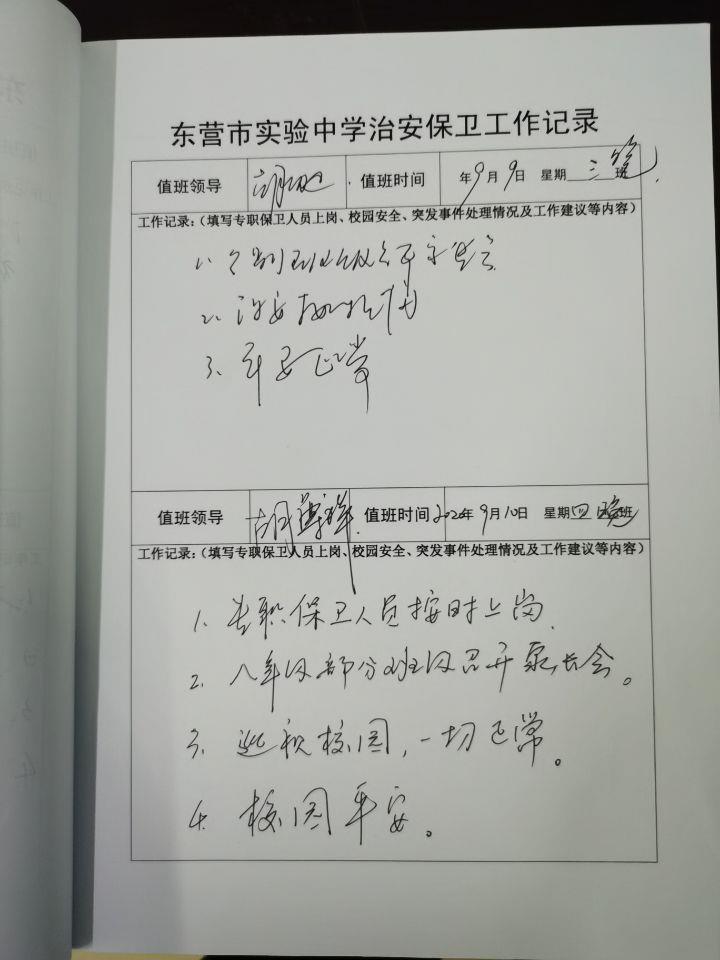 东营市实验中学治安保卫工作记录
值班领导 值班时间 年9月9日 星期三 班
工作记录:(填写专职保卫人员上岗、校园安全、突发事件处理情况及工作建议等内容)
1. 个别班级召开家长会
2. 治安
3. 平安正常
值班领导 胡 值班时间 2020年9月10日 星期四晚班
工作记录:(填写专职保卫人员上岗、校园安全、突发事件处理情况及工作建议等内容)
1. 专职保卫人员按时上岗.
2. 八年级部分班级召开家长会。
3. 巡视校园,一切正常。
4. 校园平安。